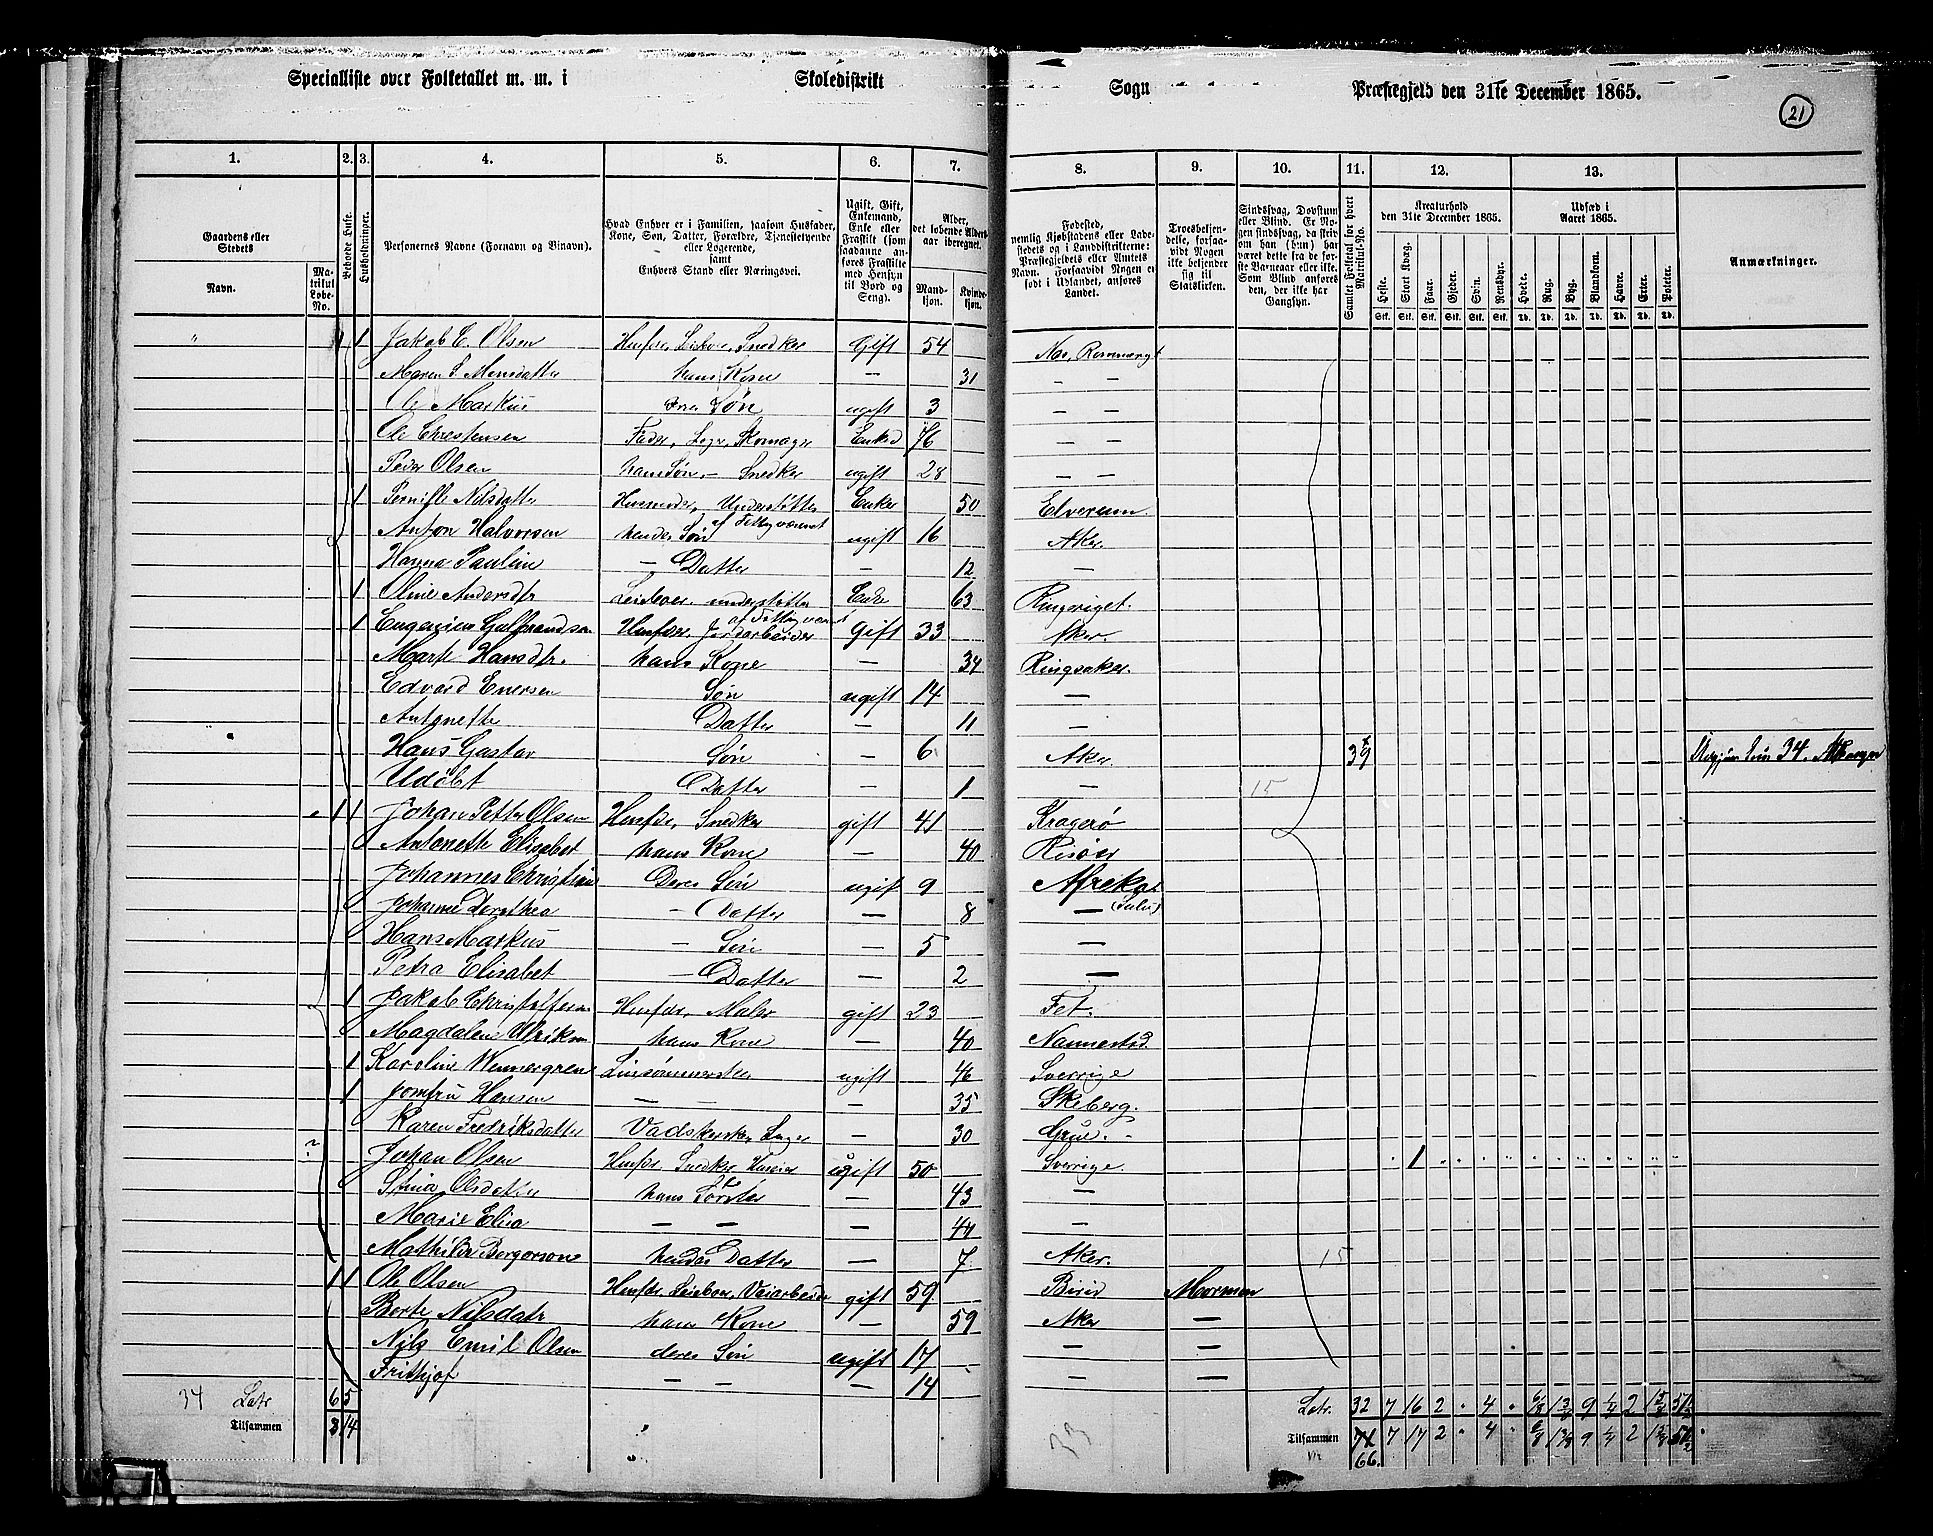 Specialliste over Folketallet m. m. i Skoledistrikt Sogn Præstegjeld den 31te December 1865.
21
1. 2. 3. 4. 5. 6. 7. 8. 9. 10. 11. 12. 13.
Gaardens eller Stedets Navn.
Matrikul Løbe-No.
Beboede Huse.
Husholdninger.
Personernes Navne (Fornavn og Tilnavn).
Hvad Enhver er i Familien, saasom Husfader, Kone, Søn, Datter, Forældre, Tjenestetyende eller Logerende, samt Enhvers Stand eller Næringsvei.
Ugift, Gift, Enkemand, Enke eller Fraskilt (som saadanne anføres Fraskilte med Hensyn til Bord og Seng).
Alder, det løbende Aldersaar iberegnet.
Mandkjøn. Kvindekjøn.
Fødested, nemlig Kjøbstadens eller Ladestedets og i Landdistrikterne: Præstegjeldets eller Amtets Navn. Forsaavidt Nogen er født i Udlandet, anføres Landet.
Troesbekjendelse, forsaavidt Nogen ikke bekjender sig til Statskirken.
Sindssvag, Døvstum eller Blind. Er Nogen sindssvag, da skriv om han (hun) har været dette fra de første Barneaar eller ikke. Som Blind anføres den, der ikke har Gangsyn.
Samlet Folketal for hvert Matrikul-No.
Kreaturhold den 31te December 1865.
Heste. Stort Kvæg. Faar. Gjeder. Svin. Rensdyr.
Udsæd i Aaret 1865.
Hvede. Rug. Byg. Blandkorn. Havre. Erter. Poteter.
Anmærkninger.
Stk. Stk. Stk. Stk. Stk. Stk. Td. Td. Td. Td. Td. Td. Td.
" 1 1 Jakob C. Olsen Husfdr, Leiebor, Snedker Gift 54 Nes, Romerigt
Maren S. Monsdatter hans Kone — 31 — —
Ole Markus Søn ugift 3 — —
Ole Christensen Fader, Logr, Skomager Enked 76 — —
Peder Olsen hans Søn, - Snedker ugift 28 — —
1 Pernille Nilsdatter Husmoder, Understøttes af Fattigvæsenet Enke 50 Elverum
Anton Halvorsen hendes Søn ugift 16 Aker.
Hanna Paulin — Datter — 12 —
1 Oline Andersdtr Leiebor. understøttes af Fattigvæsenet Enke 63 Ringeriget.
1 Husfdr, Jordarbeider Gift 33 Aker.
Marte Hansdtr. hans Kone — 34 Ringsaker.
Edvard Enersen Søn ugift 14 —
Antonette Datter — 11 —
Hans Gustav Søn — 6 Aker 39
Udøbt Datter — 1 — 15
1 1 Johan Petter Olsen Husfdr, Snedker gift 41 Kragerø
Antonette Elisabet hans Kone — 40 Risøer
Johannes Christian Deres Søn ugift 9 Afreka
Johanne Dorothea - Datter — 8 —
Hans Markus - Søn — 5 —
Petra Elisabet - Datter — 2 —
1 Jakob Christoffersen Husfdr, Maler gift 23 Fet.
Magdalene Ulriksen hans Kone — 40 Nannestad.
1 Karoline Wennergren Linsømmerske ugift 46 Sverrige
1 Jomfru Hansen — — 35 Skeberg.
Karen Fredriksdatter Vadskerske, Loger — 30 Grue. -
Johan Olsen Husfdr, Snedker, Huseier ugift 50 Sverrige. 1
Stina Olsdatter hans Søster — 43 —
Marie Elisa — — — 44 —
Mathilde Borgersen hendes Datter — 7 Aker. 15
1 1 Ole Olsen Husfdr, Leiebor, Veiarbeider gift 59 Birid Mormon
Berte Nilsdatr hans Kone — 59 Aker —
Nils Emil Olsen deres Søn ugift 17 — —
Frithjof — — — 14 — —
34 Latr 6 5 Latr. 32 7 16 2 " 4 " 9 2
Tilsammen 8 14 33 Tilsammen 7 17 2 " 4 9 2
66.